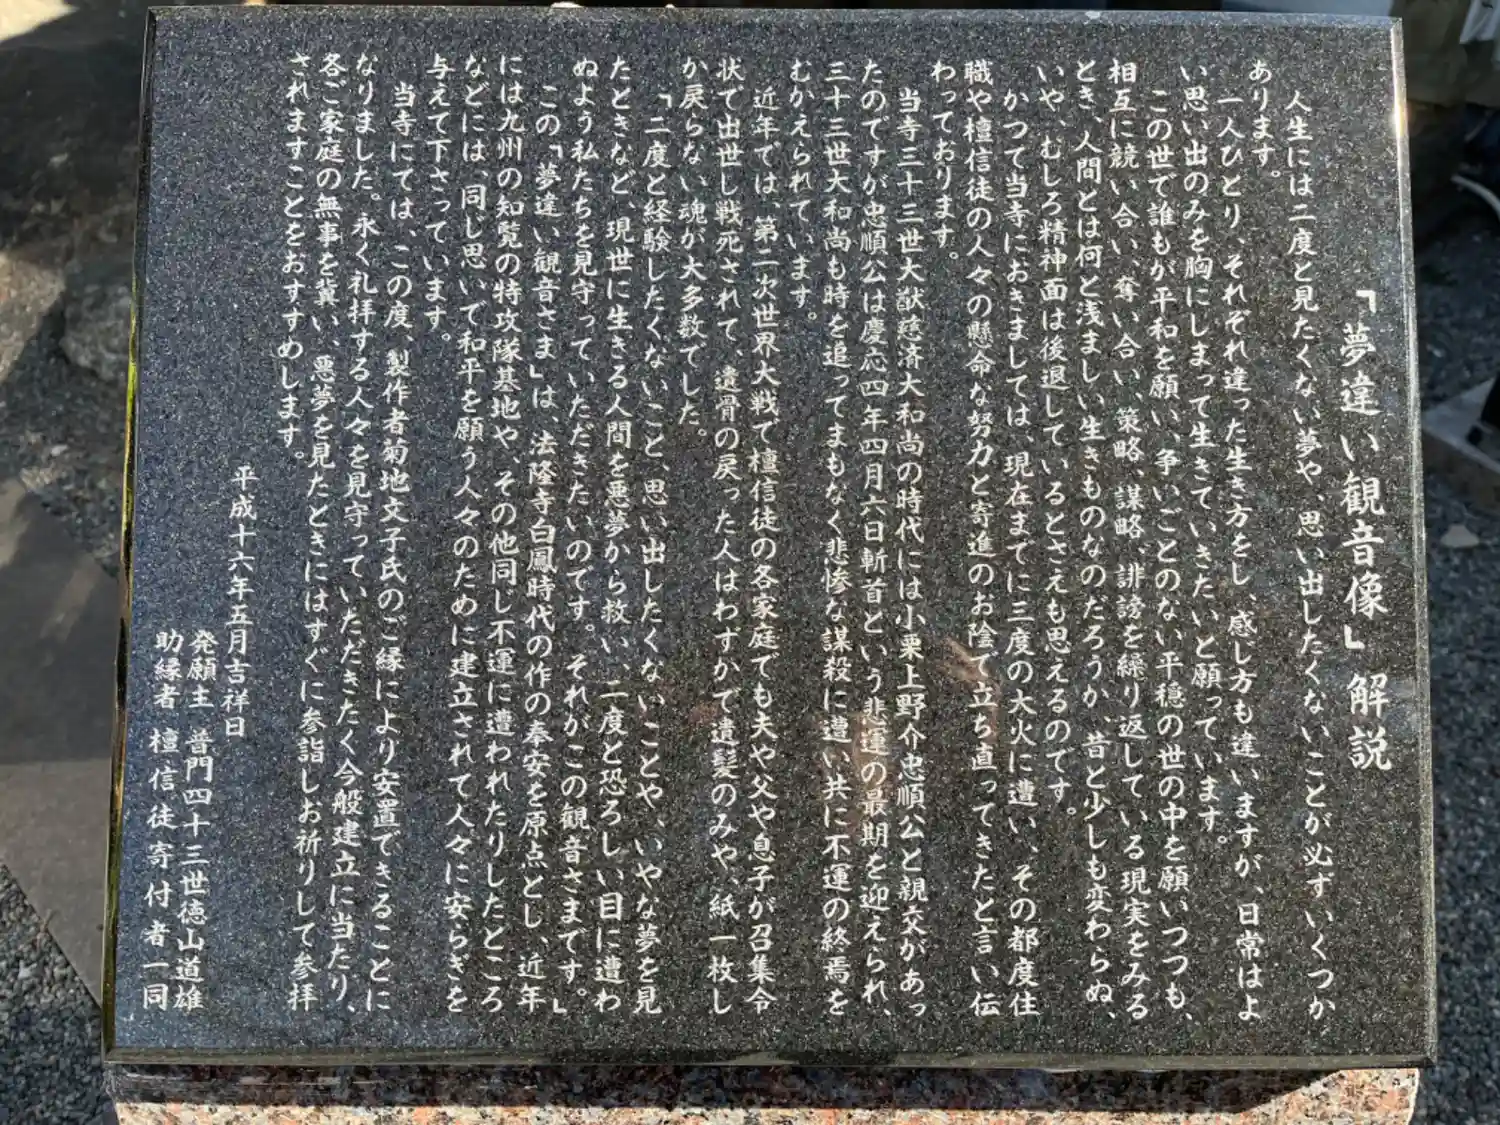 「夢違い観音像」解説
人生には二度と見たくない夢や、思い出したくないことが必ずいくつか
あります。
一人ひとり、それぞれ違った生き方をし、感じ方も違いますが、日常はよ
い思い出のみを胸にしまって生きていきたいと願っています。
この世で誰もが平和を願い、争いごとのない平穏の世の中を願いつつも、
相互に競い合い、奪い合い、策略、謀略、誹謗を繰り返している現実をみる
とき、人間とは何と浅ましい生きものなのだろうか、昔と少しも変わらぬ、
いや、むしろ精神面は後退しているとさえも思えるのです。
かつて当寺におきましては、現在までに三度の大火に遭い、その都度住
職や檀信徒の人々の懸命な努力と寄進のお陰で立ち直ってきたと言い伝
わっております。
当寺三十三世大猷慈済大和尚の時代には小栗上野介忠順公と親交があっ
たのですが忠順公は慶応四年四月六日斬首という悲運の最期を迎えられ、
三十三世大和尚も時を追ってまもなく悲惨な謀殺に遭い共に不運の終焉を
むかえられています。
近年では、第二次世界大戦で檀信徒の各家庭でも夫や父や息子が召集令
状で出世し戦死されて、遺骨の戻った人はわずかで遺髪のみや、紙一枚し
か戻らない魂が大多数でした。
「二度と経験したくないこと、思い出したくないことや、いやな夢を見
たときなど、現世に生きる人間を悪夢から救い、二度と恐ろしい目に遭わ
ぬよう私たちを見守っていただきたいのです。それがこの観音さまです。」
この「夢違い観音さま」は、法隆寺白鳳時代の作の奉安を原点とし、近年
には九州の知覧の特攻隊基地や、その他同じ不運に遭われたりしたところ
などには、同じ思いで和平を願う人々のために建立されて人々に安らぎを
与えて下さっています。
当寺にては、この度、製作者菊地文子氏のご縁により安置できることに
なりました。永く礼拝する人々を見守っていただきたく今般建立に当たり、
各ご家庭の無事を冀い、悪夢を見たときにはすぐに参詣しお祈りして参拝
されますことをおすすめします。
平成十六年五月吉祥日
発願主 普門四十三世徳山道雄
助縁者 檀信徒寄付者一同